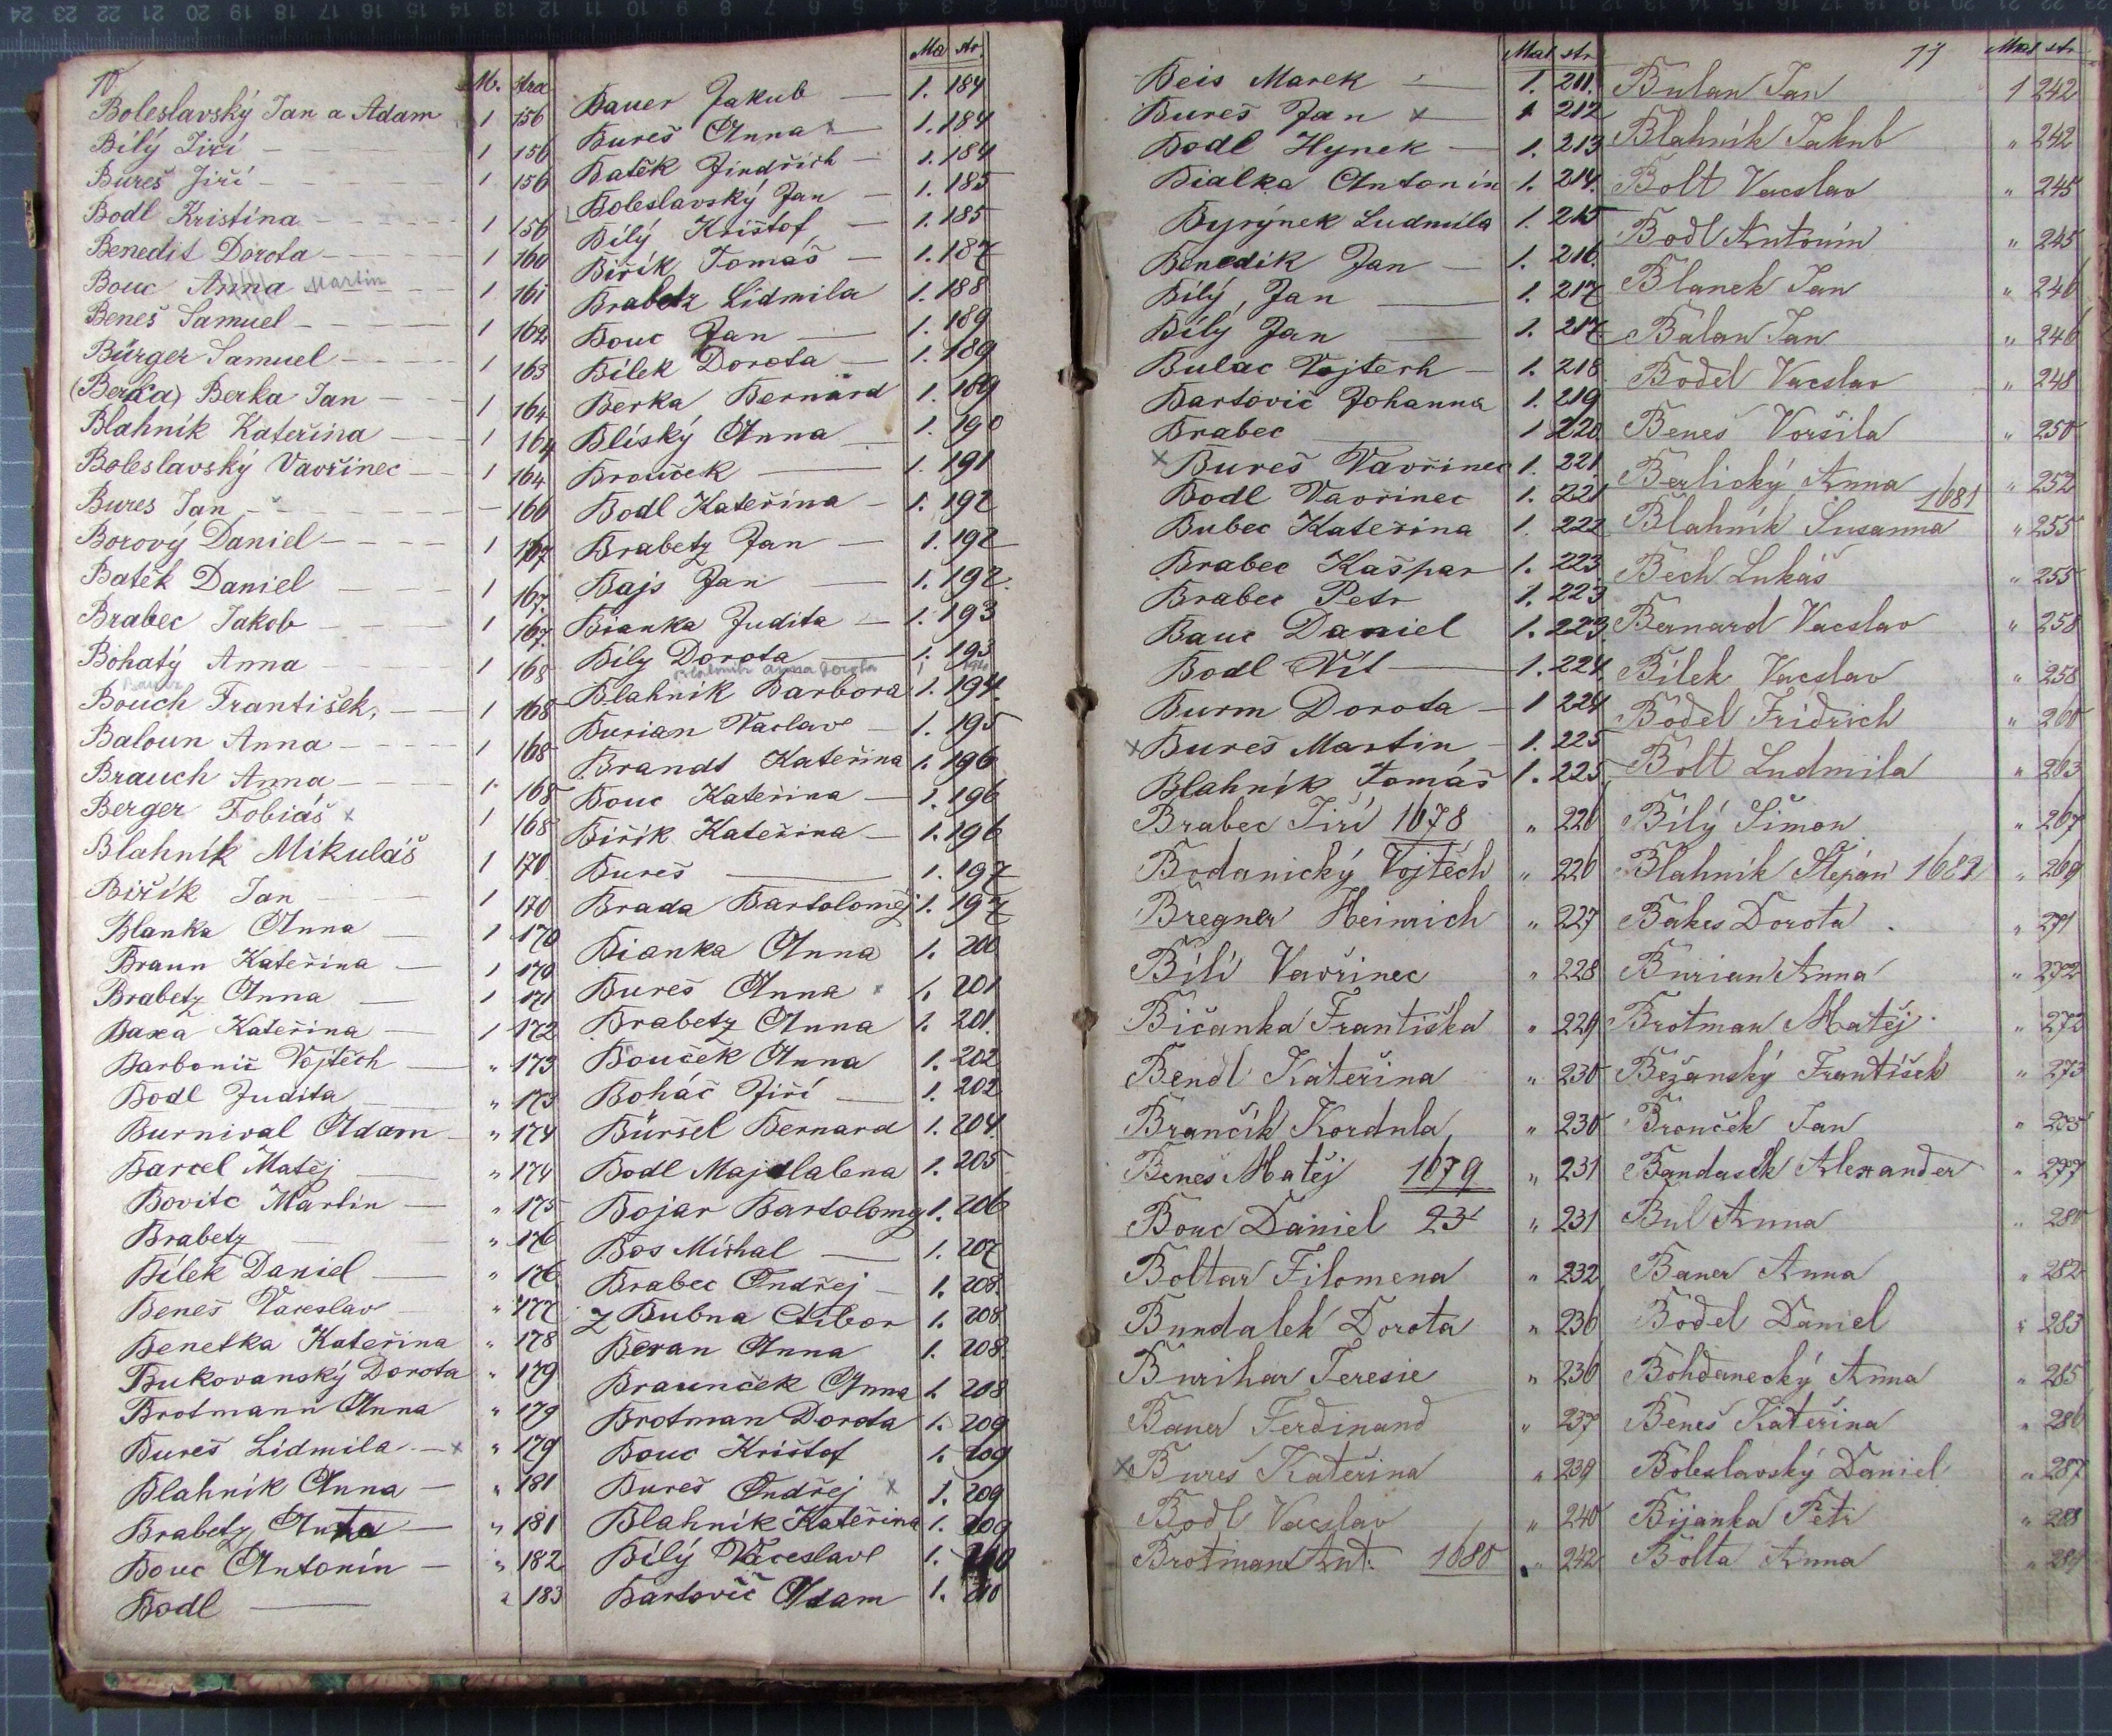 10
M. stra
Boleslavský Jan a Adam 1 156
Bílý Jiří 1 156
Bureš Jiří 1 156
Bodl Kristína 1 156
Benedit Dorota 1 160
Bouc Anna Martin 1 161
Beneš Samuel 1 162
Bürger Samuel 1 163
(Berka) Berka Jan 1 164
Blahník Kateřina 1 164
Boleslavský Vavřinec 1 164
Bures Jan 166
Borový Daniel 1 167
Batěk Daniel 1 167
Brabec Jakob 1 167
Bohatý Anna 1 168
Bouch František 1 168
Baloun Anna 1 168
Brauch Anna 1 168
Berger Tobiáš x 1 168
Blahník Mikuláš 1 170
Biřík Jan 1 170
Blanka Anna 1 170
Braun Kateřina 1 170
Brabetz Anna 1 171
Baxa Kateřina 1 172
Barbonič Vojtěch " 173
Bodl Judita " 173
Burnival Adam " 174
Barcel Matěj " 174
Bovitc Martin " 175
Brabetz " 176
Bílek Daniel " 176
Beneš Vaceslav " 177
Benetka Kateřina " 178
Bukovanský Dorota " 179
Brotmann Anna " 179
Bureš Lidmila x " 179
Blahník Anna " 181
Brabetz Anna " 181
Bouc Antonín " 182
Bodl " 183
Ma str.
Bauer Jakub 1. 184
Bureš Anna x 1. 184
Batěk Jindřich 1. 184
Boleslavský Jan 1. 185
Bílý Krištof 1. 185
Biřík Tomáš 1. 187
Brabetz Lidmila 1. 188
Bouc Jan 1. 189
Bílek Dorota 1. 189
Berka Bernard 1. 189
Blíský Anna 1. 190
Brouček 1. 191
Bodl Kateřina 1. 192
Brabetz Jan 1. 192
Bajs Jan 1. 192
Bianka Judita 1. 193
Bílý Dorota 1. 193
Blahník Anna Dorota 1 194
Blahník Barbora 1. 194
Burian Vaclav 1. 195
Brandt Kateřina 1. 196
Bouc Kateřina 1. 196
Biřík Kateřina 1. 196
Bureš 1. 197
Brada Bartoloměj 1. 197
Bianka Anna 1. 200
Bureš Anna x 1. 201
Brabetz Anna 1. 201
Bouček Anna 1. 202
Boháč Jiří 1. 202
Büršel Bernard 1. 204
Bodl Majdlalena 1. 205
Bojar Bartolomy 1. 206
Bos Michal 1. 207
Brabec Ondřej 1. 208
z Bubna Ctibor 1. 208
Beran Anna 1. 208
Braunček Anna 1. 208
Brotman Dorota 1. 209
Bouc Krištof 1. 209
Bureš Ondřej x 1. 209
Blahník Kateřina 1. 209
Bílý Vaceslav 1. 210
Bartovič Adam 1. 210
Mat str
Beis Marek 1. 211.
Bureš Jan x 1 212
Bodl Hynek 1. 213
Bialka Antonín 1. 214.
Byrýnek Ludmila 1. 215
Benedik Jan 1. 216.
Bílý, Jan 1. 217
Bílý Jan 1. 217
Bulac Vojtěch 1. 218
Bartovič Johanna 1. 219
Brabec 1 220
x Bureš Vavřinec 1. 221
Bodl Vavřinec 1. 221
Bubec Kateřina 1. 222
Brabec Kašpar 1. 223
Brabec Petr 1. 223
Bauc Daniel 1. 223
Bodl Vít 1. 224
Burm Dorota 1 224
x Bureš Martin 1. 225
Blahník Tomáš 1. 225
Brabec Jiří 1678 " 226
Bodanický Vojtěch " 226
Bregner Heinrich " 227
Bílí Vavřinec " 228
Bičanka Františka " 229
Bendl Kateřina " 230
Brančík Kordula " 230
Beneš Matěj 1679 " 231
Bouc Daniel 23 " 231
Boltar Filomena " 232
Bundalek Dorota " 236
Burihar Teresie " 236
Bauer Ferdinand " 237
x Bureš Kateřina " 239
Bodl Vacslav " 240
Brotman Ant. 1680 " 242
11
Mat str
Bulan Jan 1 242
Blahník Jakub " 242
Bolt Vacslav " 245
Bodl Antonín " 245
Blanek Jan " 246
Balan Jan " 246
Bodel Vacslav " 248
Beneš Voršila " 250
Berlický Anna " 252
1681
Blahník Susanna " 255
Bech Lukáš " 255
Bernard Vacslav " 258
Bílek Vacslav " 258
Bodel Fridrich " 260
Bolt Ludmila " 263
Bílý Šimon " 267
Blahník Štěpán 1682 " 269
Bakes Dorota " 271
Burian Anna " 272
Brotman Matěj " 272
Bezanský František " 273
Brouček Jan " 275
Bandasek Alexander " 277
Bul Anna " 280
Bauer Anna " 282
Bodel Daniel " 283
Bohdanecký Anna " 285
Beneš Kateřina " 286
Boleslavský Daniel " 287
Bijanka Petr " 288
Bolta Anna " 289